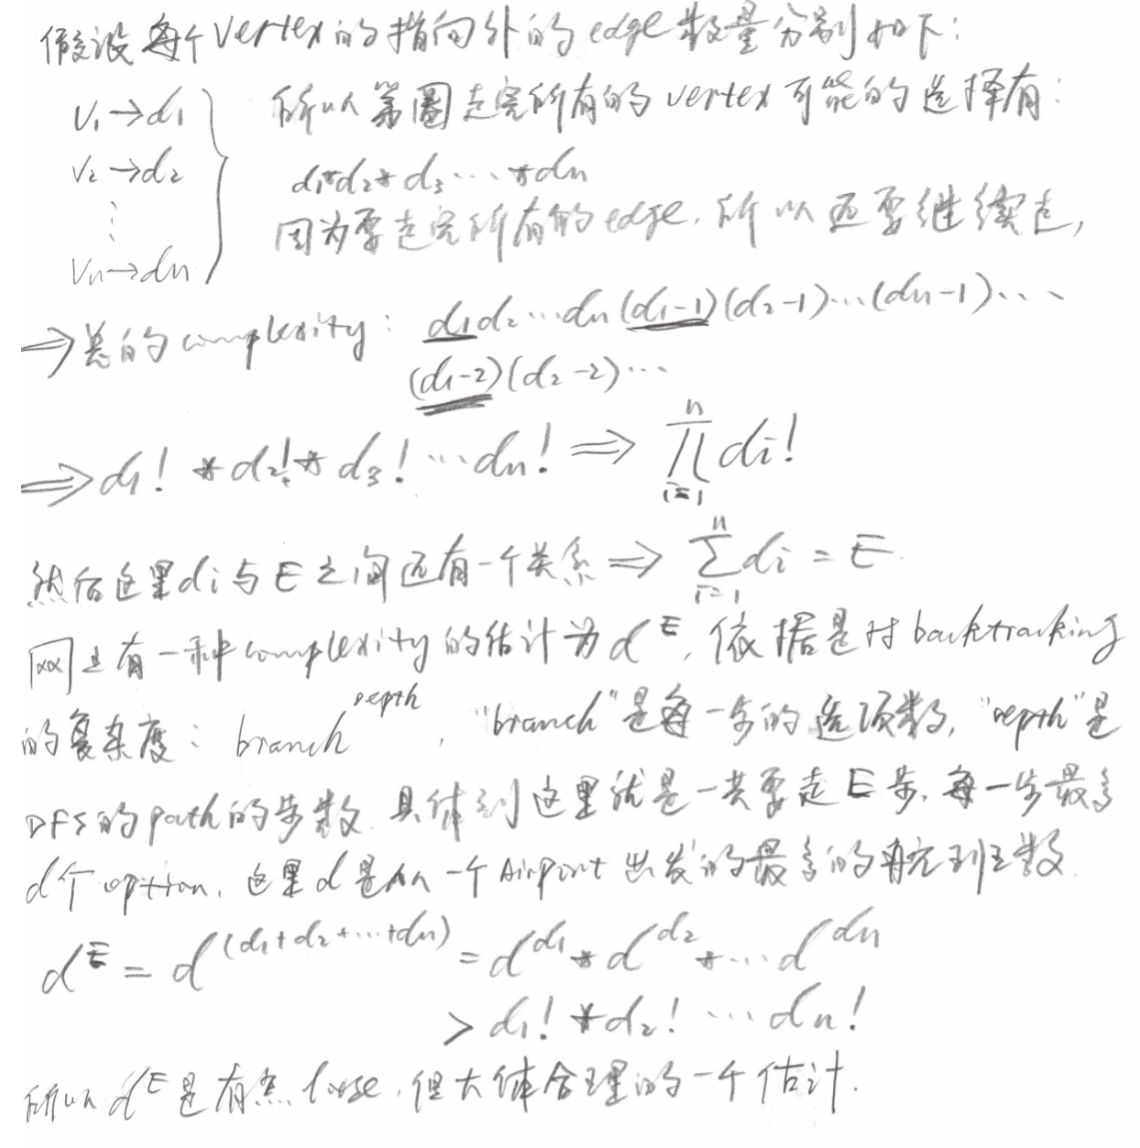 假设每个vertex的指向外的edge数量分别如下:
V₁→d₁
V₂→d₂
⋮
Vn→dn
所以第圈走完所有的vertex可能的选择有:
d₁*d₂*d₃...*dn
因为要走完所有的edge,所以还要继续走,
⇒总的complexity: d₁d₂...dn(d₁-1)(d₂-1)...(dn-1)...
(d₁-2)(d₂-2)...
⇒d₁! *d₂!* d₃!...dn! ⇒ ∏ᵢ₌₁ⁿ di!
然后这里di与E之间还有一个关系⇒ ∑ᵢ₌₁ⁿ di = E
网上有一种complexity的估计为d^E,依据是对backtracking
的复杂度: branch^depth, "branch"是每一步的选项数,"depth"是
DFS的path的步数.具体到这里就是一共要走E步,每一步最多
d个option.这里d是从一个Airport出发的最多的航线数.
d^E = d^(d₁+d₂+...+dn) = d^d₁ * d^d₂ *...d^dn
> d₁! *d₂! ...dn!
所以d^E是有点loose,但大体合理的一个估计.